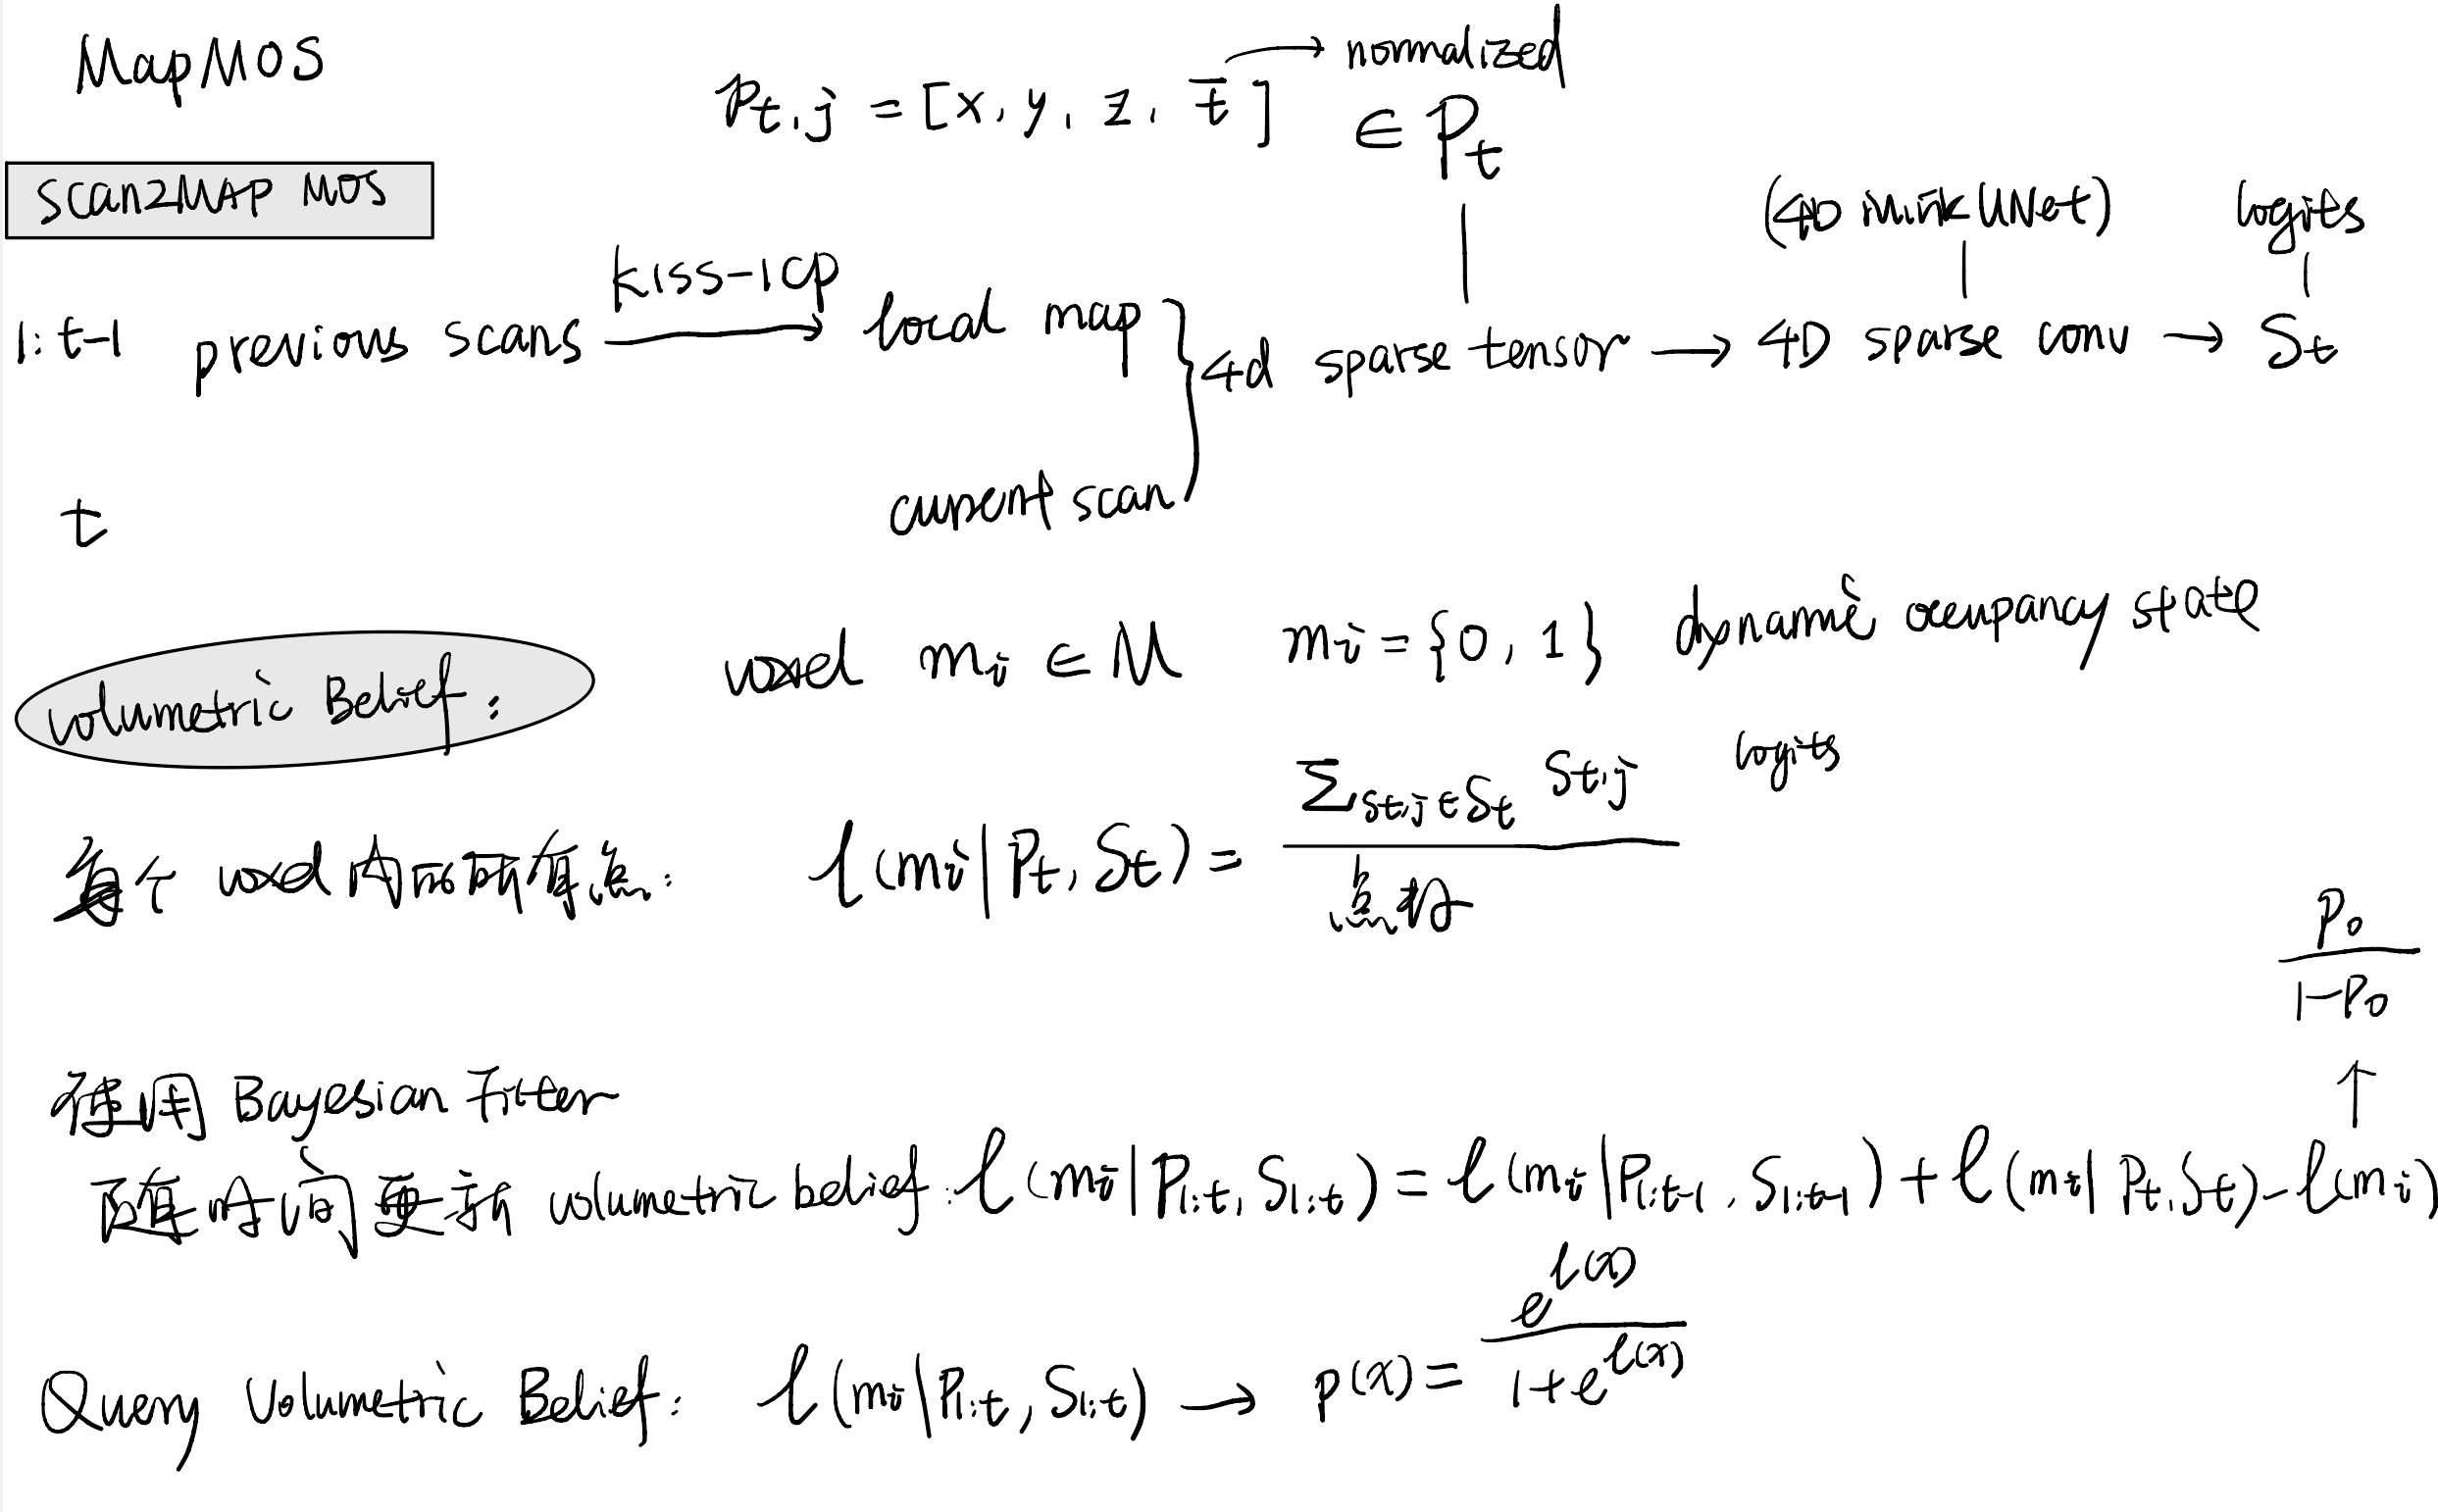 MapMOS
normalized
Pt,j = [x, y, z, t̄] ∈ Pt
scan2MAP MOS
(4D MinkUNet) logits
kiss-ICP
1:t-1 previous scans → local map } 4d sparse tensor → 4D sparse conv → St
t current scan
Volumetric Belief:
voxel mi ∈ M mi = {0, 1} dynamic occupancy state
每个 voxel 内的所有点: l(mi|Pt, St) = Σst,j∈St st,j / 点数 logits
P0 / 1-P0
↑
使用 Bayesian Filter
随时间更新 volumetric belief: l(mi|P1:t, S1:t) = l(mi|P1:t-1, S1:t-1) + l(mi|Pt, St) - l(mi)
Query Volumetric Belief: l(mi|P1:t, S1:t) → p(x) = e^l(x) / 1+e^l(x)